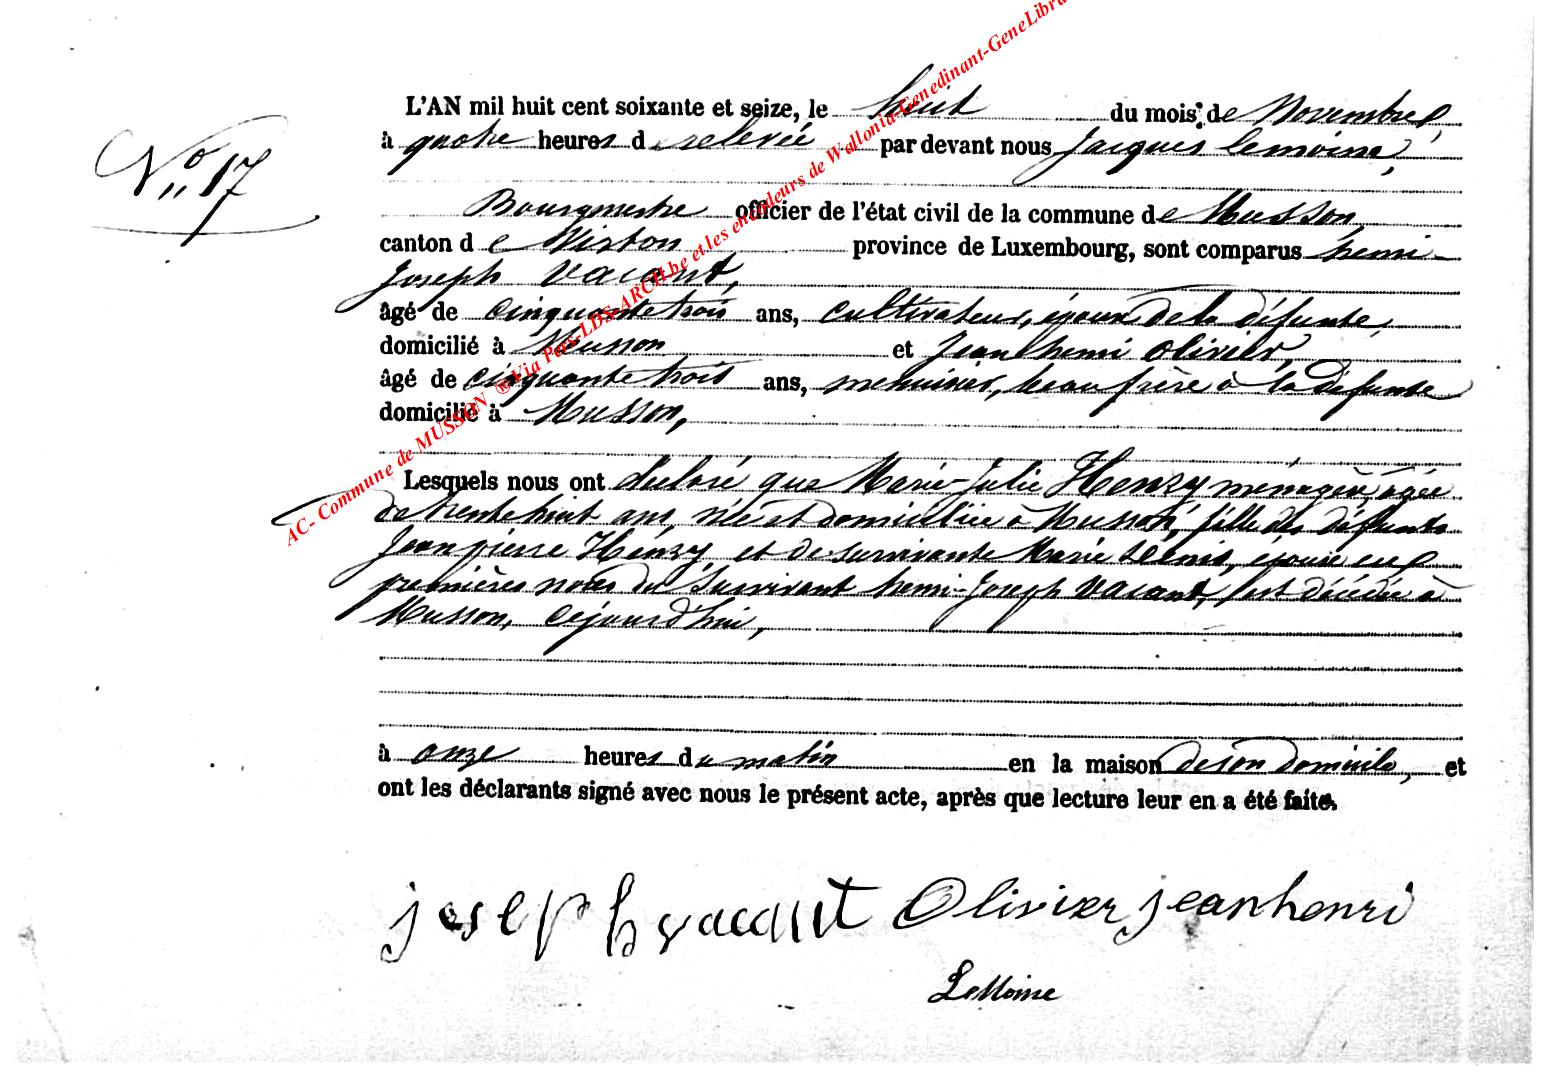 N° 17
L'AN mil huit cent soixante et seize, le huit du mois de Novembre,
à quatre heures de relevée par devant nous Jacques Lemoine,
Bourgmestre officier de l'état civil de la commune de Musson,
canton de Virton province de Luxembourg, sont comparus henri-
Joseph Vacant,
âgé de cinquante trois ans, cultivateur, époux de la défunte,
domicilié à Musson et Jean henri Olivier,
âgé de cinquante trois ans, menuisier, beau frère à la défunte
domicilié à Musson,
Lesquels nous ont déclaré que Marie-Julie Henzy ménagère, agée
de trente huit ans, née et domiciliée à Musson, fille des défunts
Jean pierre Henzy et de survivante Marie, épouse en
premières noces du survivant henri-Joseph Vacant, est décédée à
Musson, cejourd'hui,
à onze heures du matin en la maison de son domicile, et
ont les déclarants signé avec nous le présent acte, après que lecture leur en a été faite.
joseph vacant Olivier jeanhenri
LeMoine
AC- Commune de MUSSON @ Via Pars-LDS-ARCH.be et les encodeurs de Wallonia-Genedinant-GeneLibra